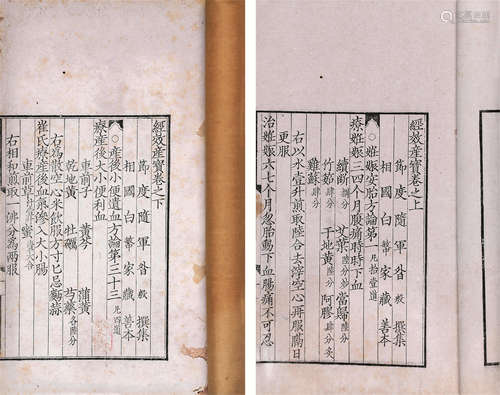 經效產寶卷之上
節度隨軍昝殷撰集
相國白敏中家藏善本
○妊娠安胎方論第一 凡拾壹道
療妊娠三四個月腹痛時時下血
續斷 艾葉 當歸陸分
竹茹肆分 干地黃陸分 阿膠肆分炙
雞蘇肆分
右以水壹升煎取陸合去滓空心再服隔日
更服
治妊娠六七個月忽胎動下血腸痛不可忍
經效產寶卷之下
節度隨軍昝殷撰集
相國白敏中家藏善本
○產後小便遺血方論第三十三 凡四道
療產後大小便利血
車前子 黃芩 蒲黃
乾地黃 牡蠣 芍藥各陸分
右為散空心米飲服方寸匕忌麵蒜
崔氏療產後血氣滲入大小腸
車前草汁壹升 蜜壹大合
右相和煎取一沸分為兩服